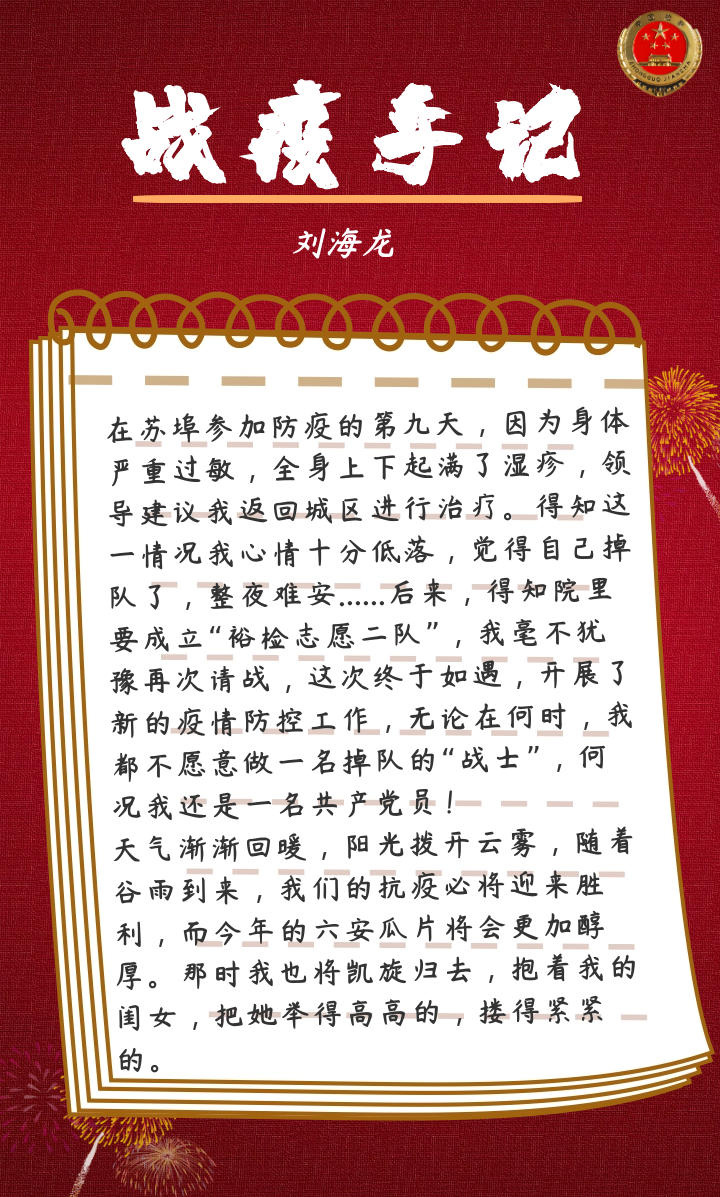 中国检察
ZHONGGUO JIANCHA
战疫手记
刘海龙
在苏埠参加防疫的第九天，因为身体
严重过敏，全身上下起满了湿疹，领
导建议我返回城区进行治疗。得知这
一情况我心情十分低落，觉得自己掉
队了，整夜难安……后来，得知院里
要成立“裕检志愿二队”，我毫不犹
豫再次请战，这次终于如遇，开展了
新的疫情防控工作，无论在何时，我
都不愿意做一名掉队的“战士”，何
况我还是一名共产党员！
天气渐渐回暖，阳光拨开云雾，随着
谷雨到来，我们的抗疫必将迎来胜
利，而今年的六安瓜片将会更加醇
厚。那时我也将凯旋归去，抱着我的
闺女，把她举得高高的，搂得紧紧
的。